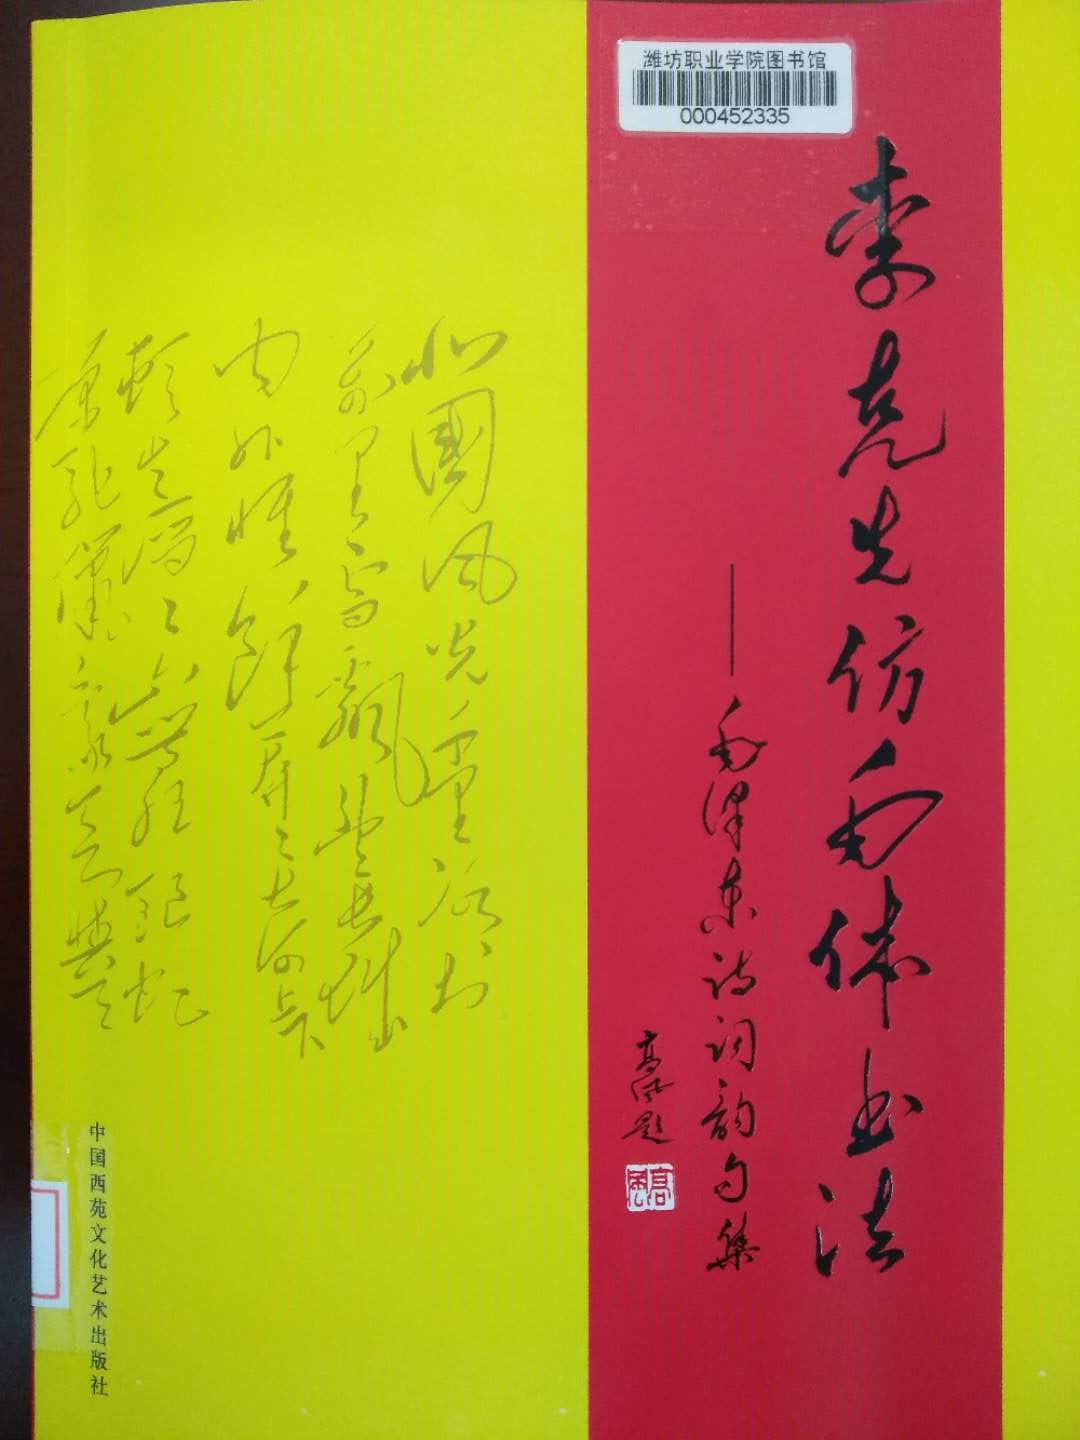 潍坊职业学院图书馆
000452335
李克先仿毛体书法
——毛泽东诗词韵句集
高风题
高风
北國风光千里冰封
萬里雪飄望長城
内外惟餘莽莽大河上下
頓失滔滔山舞銀蛇
原馳
中国西苑文化艺术出版社